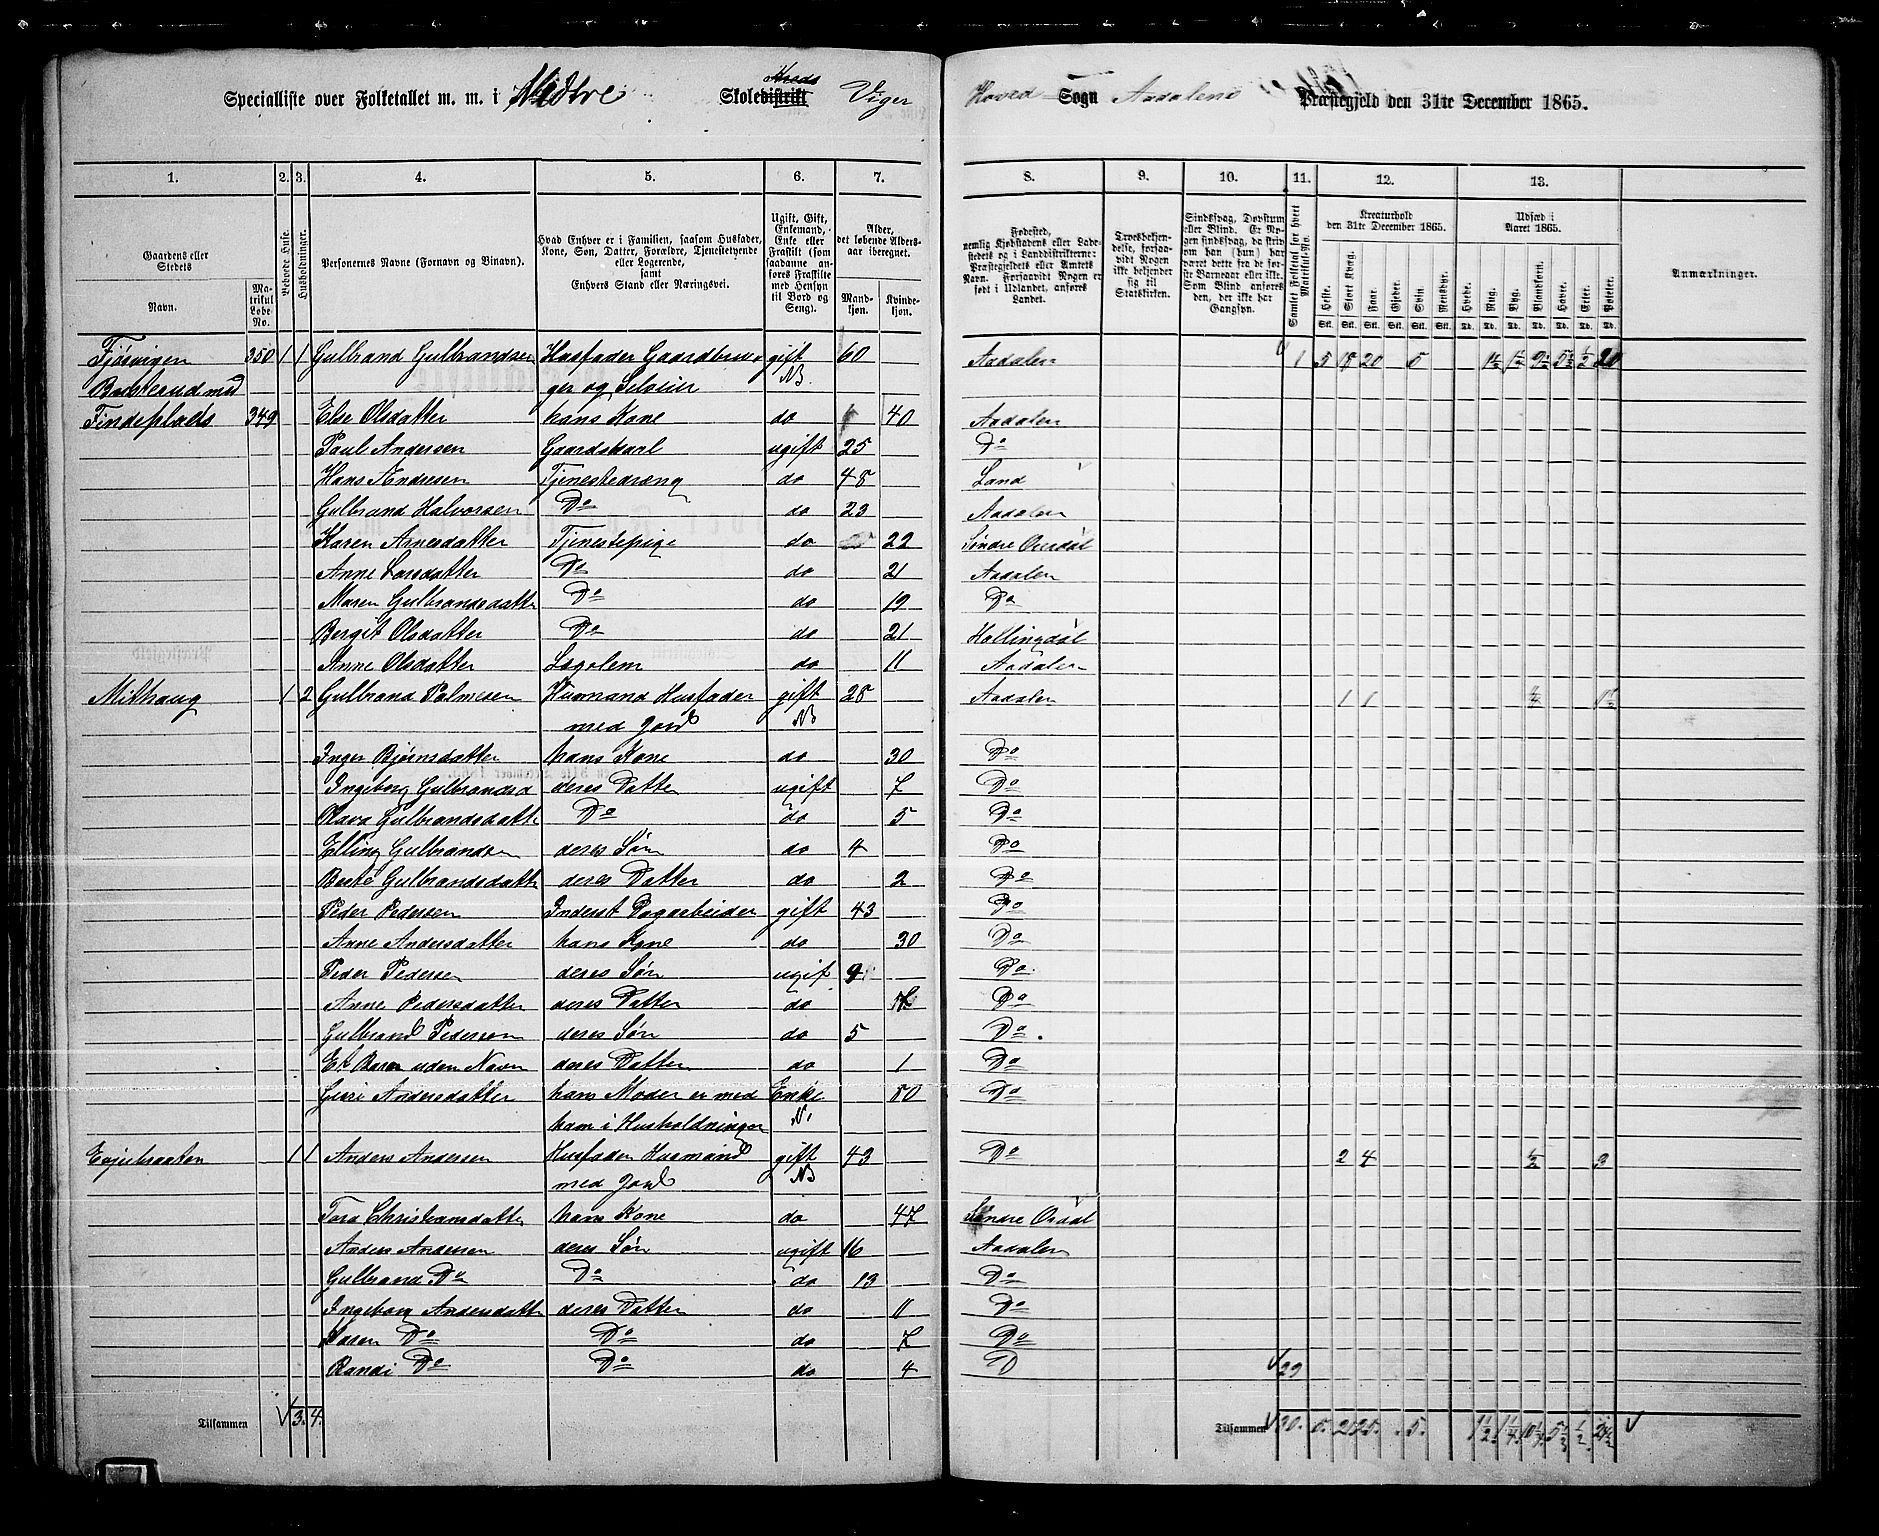 Specialliste over Folketallet m. m. i Midtre Skoledistrikt Kreds Viger
Hoved Sogn Aadalens Præstegjeld den 31te December 1865.
1. 2. 3. 4. 5. 6. 7. 8. 9. 10. 11. 12. 13.
Gaardens eller Stedets Navn. Matrikul Løbe-No. Bebyede Huse. Husholdninger. Personernes Navne (Fornavn og Binavn).
Hvad Enhver er i Familien, saasom Husfader, Kone, Søn, Datter, Forældre, Tjenestetyende eller Logerende, samt Enhvers Stand eller Næringsvei.
Ugift, Gift, Enkemand, Enke eller Fraskilt (som saadanne anføres Fraskilte med Hensyn til Bord og Seng).
Alder, det løbende Aldersaar iberegnet. Mandkjøn. Kvindekjøn.
Fødested, nemlig Kjøbstadens eller Ladestedets og i Landdistrikterne: Præstegjeldets eller Amtets Navn. Forsaavidt Nogen er født i Udlandet, anføres Landet.
Troesbekjendelse, forsaavidt Nogen ikke bekjender sig til Statskirken.
Sindssvag, Døvstum eller Blind. Er Nogen sindssvag, da skrives om han (hun) har været dette fra de første Barneaar eller ikke. Som Blind anføres den, der ikke har Gangsyn.
Samlet Folketal for hvert Matrikul-No.
Kreaturhold den 31te December 1865. Heste. Stort Kvæg. Faar. Gjeder. Svin. Rensdyr.
Udsæd i Aaret 1865. Hvede. Rug. Byg. Blandkorn. Havre. Erter. Poteter.
Anmærkninger.
Tjøsvigen 350 1 1 Gulbrand Gulbrandsen Husfader Gaardbru- gift 60 Aadalen 1 5 18 20 5 20
Bølstrand med ger og Selveier NB.
Findeplads 349 Else Olsdatter hans Kone do 40 Aadalen
Paul Andersen Gaardskarl ugift 25 Do
Hans Andresen Tjenestedræng do 48 Land
Gulbrand Halvorsen Do do 23 Aadalen
Karen Arnesdatter Tjenestepige do 22 Søndre Ourdal
Anne Larsdatter Do do 21 Aadalen
Maren Gulbrandsdatte Do do 19 Do
Bergit Olsdatter Do do 21 Hallingdal
Anne Olsdatter Lægslem do 11 Aadalen
Milhaug 1 2 Gulbrand Palmesen Husmand Husfader gift 28 Aadalen 1 1 1/4 1 1/2
med Jord NB
Inger Bjørnsdatter hans Kone do 30 Do
Ingeborg Gulbrandsd deres Datter ugift 7 Do
Olava Gulbrandsdatte Do do 5 Do
Elling Gulbrandsen deres Søn do 4 Do
Berte Gulbrandsdatte deres Datter do 2 Do
Peder Pedersen Inderst Dagarbeider gift 43 Do
Anne Andersdatter hans Kone do 30 Do
Peder Pedersen deres Søn ugif 9 Do
Anne Pedersdatter deres Datter do Do
Gulbrand Pedersen deres Søn do 5 Do
Et Barn uden Navn deres Datter do 1 Do
Guri Andersdatter hans Moder er med Enke 80 Do
ham i Husholdningen N.
1 1 Anders Andersen Husfader Husmand gift 43 Do 2 4 1/2 3
med Jord NB
Tora Christiansdatter hans Kone do 47 Søndre Ordal
Anders Andersen deres Søn ugift 16 Aadalen
Gulbrand Do Do do 13 Do
Ingeborg Andersdatte deres Datter do 11 Do
Karen Do Do do 7 Do
Randi Do Do do 4 D 29
Tilsammen 3. 4. Tilsammen 30. 5. 21 25. 5. 1 1/2 1 1/4 10 1/4 5 1/2 1/2 24 1/2